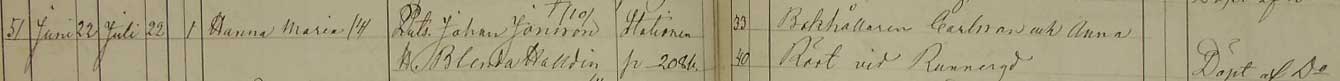 Döpt af
†/10/
51 Juni 22 Juli 22 1 Hanna Maria /4/ Pats. Johan Jönsson Stationen 33 Bokhållaren Carlsson och Anna
H. Blenda Halldin p 208 40 Röst vid Runnergd Döpt af Do